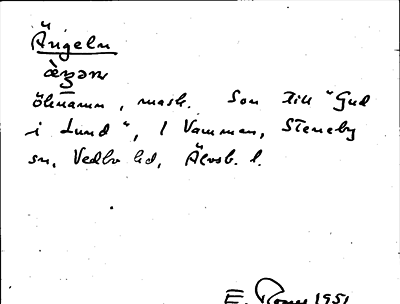 Ängeln
öknamn, mask. Son till "Gud
i Lund", i Vamman, Steneby
sn, Vedbo hd, Älvsb. l.
E. 1951